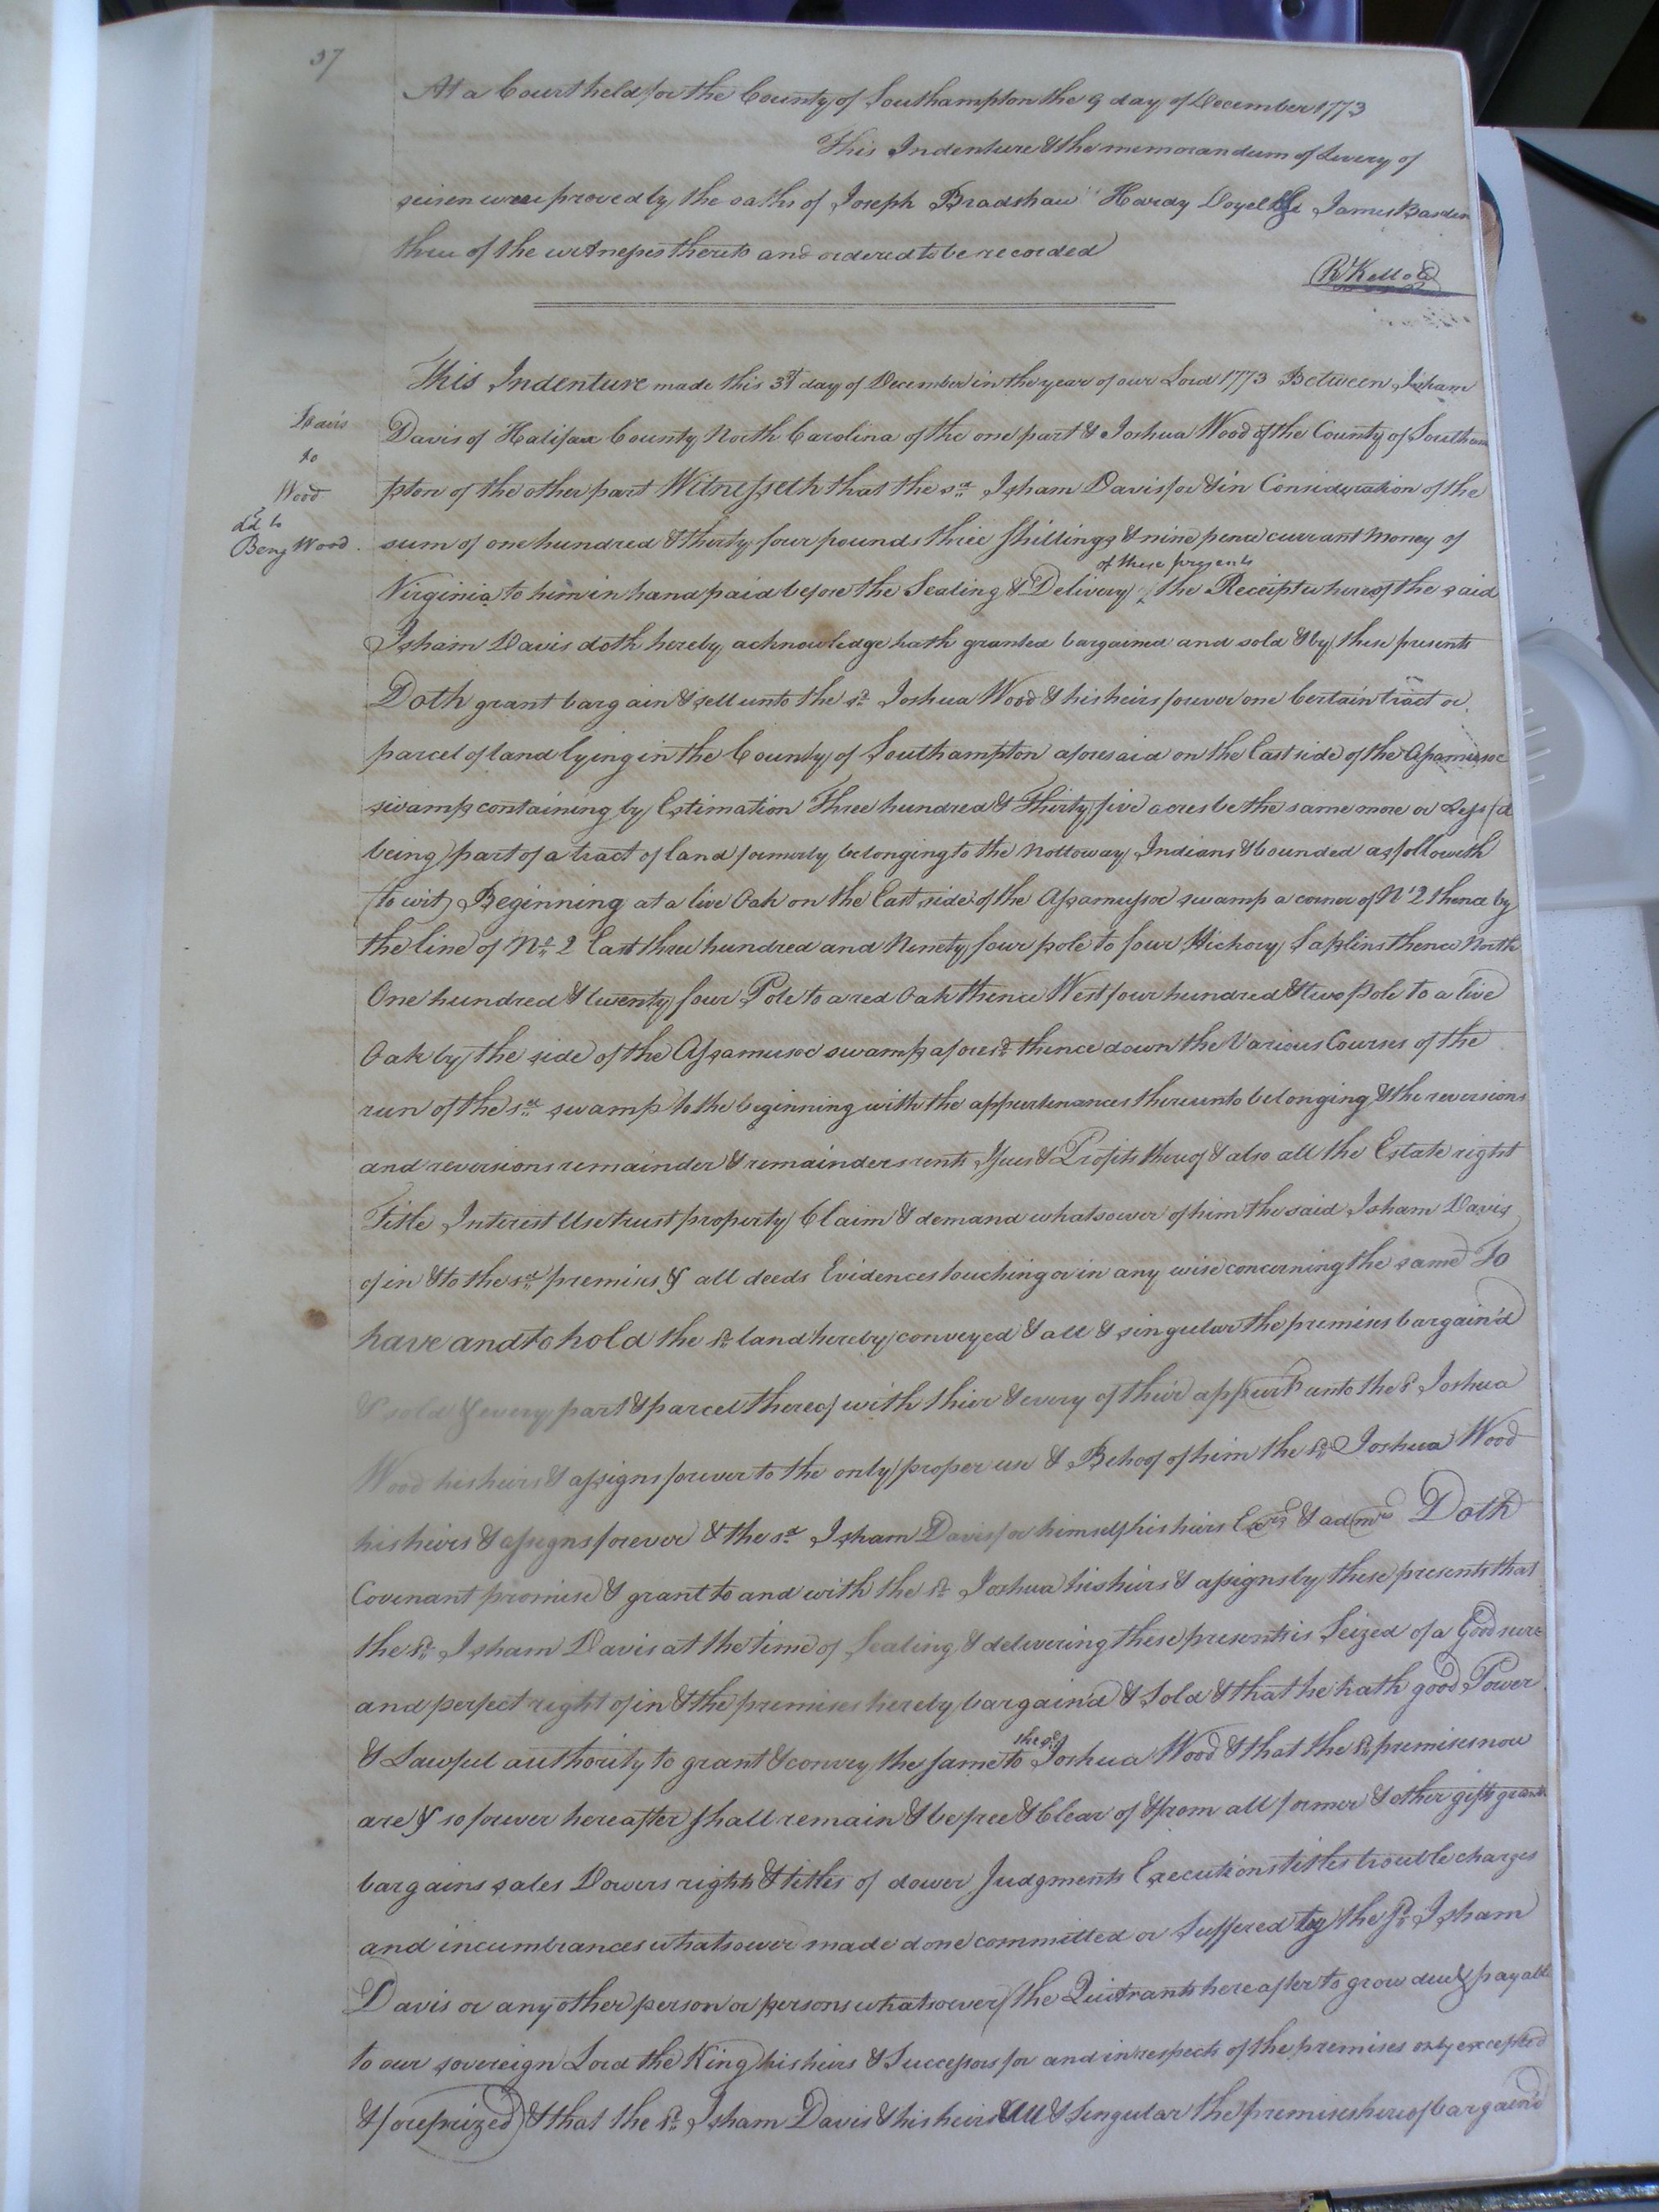 37
At a Court held for the County of Southampton the 9 day of December 1773
This Indenture & the memorandum of Livery of
seisen were proved by the oaths of Joseph Bradshaw Hardy Doyel & James Barden
three of the witnesses thereto and ordered to be recorded
R Kello
This Indenture made this 3d day of December in the year of our Lord 1773 Between Isham
Davis
Davis of Halifax County North Carolina of the one part & Joshua Wood of the County of Southam
to
Wood
pton of the other part Witnesseth that the sd Isham Davis for & in Consideration of the
dd to
Benj Wood.
sum of one hundred & thirty four pounds three shillings & nine pence currant money of
of these presents
Virginia to him in hand paid before the Sealing & Delivery ^ the Receipt whereof the said
Isham Davis doth hereby acknowledge hath granted bargained and sold & by these presents
Doth grant bargain & sell unto the sd Joshua Wood & his heirs forever one Certain tract or
parcel of land lying in the County of Southampton aforesaid on the East side of the Apamusoc
swamp containing by Estimation Three hundred & Thirty five acres be the same more or Less (
being part of a tract of land formerly belonging to the Nottoway Indians & bounded as followeth
(to wit) Beginning at a live Oak on the East side of the Assamusoc swamp a corner of No 2 thence by
the line of No 2 East three hundred and Ninety four pole to four Hickory Saplins thence North
One hundred & twenty four Pole to a red Oak thence West four hundred & two Pole to a live
Oak by the side of the Assamusoc swamp aforesd thence down the Various Courses of the
run of the sd swamp to the beginning with the appurtenances thereunto belonging & the reversions
and reversions remainder & remainders rents Issues & Profits thereof & also all the Estate right
Title Interest Use trust property Claim & demand whatsoever of him the said Isham Davis
of in & to the sd premises & all deeds Evidences touching or in any wise concerning the same To
have and to hold the sd land hereby conveyed & all & singular the premises bargain'd
& sold & every part & parcel thereof with thier & every of their appurts unto the sd Joshua
Wood his heirs & assigns forever to the only proper use & Behoof of him the sd Joshua Wood
his heirs & assigns forever & the sd Isham Davis for himself his heirs Exrs & admrs Doth
Covenant promise & grant to and with the sd Joshua his heirs & assigns by these presents that
the sd Isham Davis at the time of Sealing & delivering these presents is Seized of a Good sure
and perfect right of in & the premises hereby bargain'd & Sold & that he hath good Power
the sd
& Lawful authority to grant & convey the same to Joshua Wood & that the sd premises now
are & so forever hereafter shall remain & be free & Clear of & from all former & other gifts grants
bargains sales Dowers rights & titles of dower Judgments Executions titles trouble charges
and incumbrances whatsoever made done committed or Suffered by the sd Isham
Davis or any other person or persons whatsoever (the Quitrants hereafter to grow due & payable
to our sovereign Lord the King his heirs & Successors for and in respect of the premises only excepted
& foreprized) & that the sd Isham Davis & his heirs All & Singular the premises hereof bargain'd